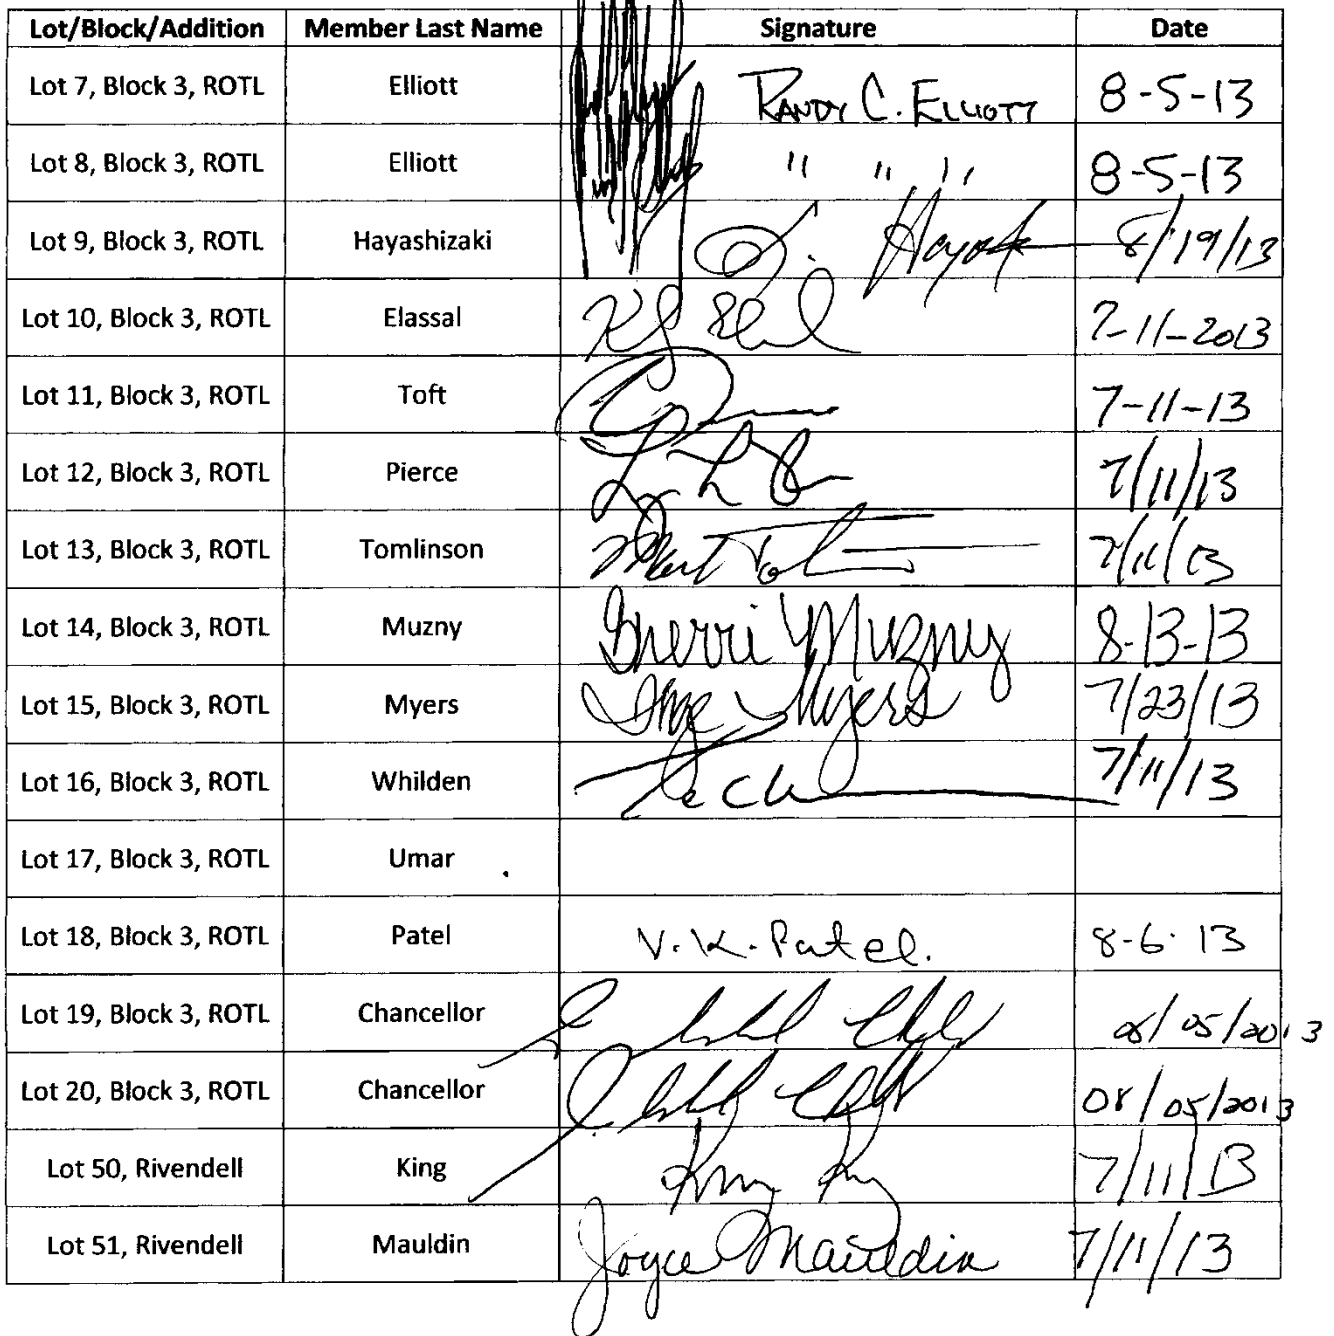 Lot/Block/Addition Member Last Name Signature Date
Lot 7, Block 3, ROTL Elliott RANDY C. ELLIOTT 8-5-13
Lot 8, Block 3, ROTL Elliott " " " 8-5-13
Lot 9, Block 3, ROTL Hayashizaki 8/19/13
Lot 10, Block 3, ROTL Elassal 7-11-2013
Lot 11, Block 3, ROTL Toft 7-11-13
Lot 12, Block 3, ROTL Pierce 7/11/13
Lot 13, Block 3, ROTL Tomlinson 7/11/13
Lot 14, Block 3, ROTL Muzny Sherri Muzny 8-13-13
Lot 15, Block 3, ROTL Myers Myers 7/23/13
Lot 16, Block 3, ROTL Whilden 7/11/13
Lot 17, Block 3, ROTL Umar
Lot 18, Block 3, ROTL Patel V.K.Patel. 8-6-13
Lot 19, Block 3, ROTL Chancellor 08/05/2013
Lot 20, Block 3, ROTL Chancellor 08/05/2013
Lot 50, Rivendell King 7/11/13
Lot 51, Rivendell Mauldin Joyce Mauldin 7/11/13